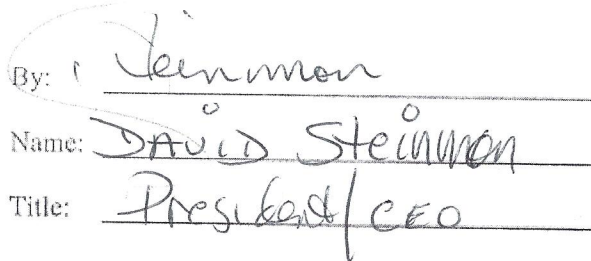 By: Steinmon
Name: DAVID Steinmon
Title: President/CEO